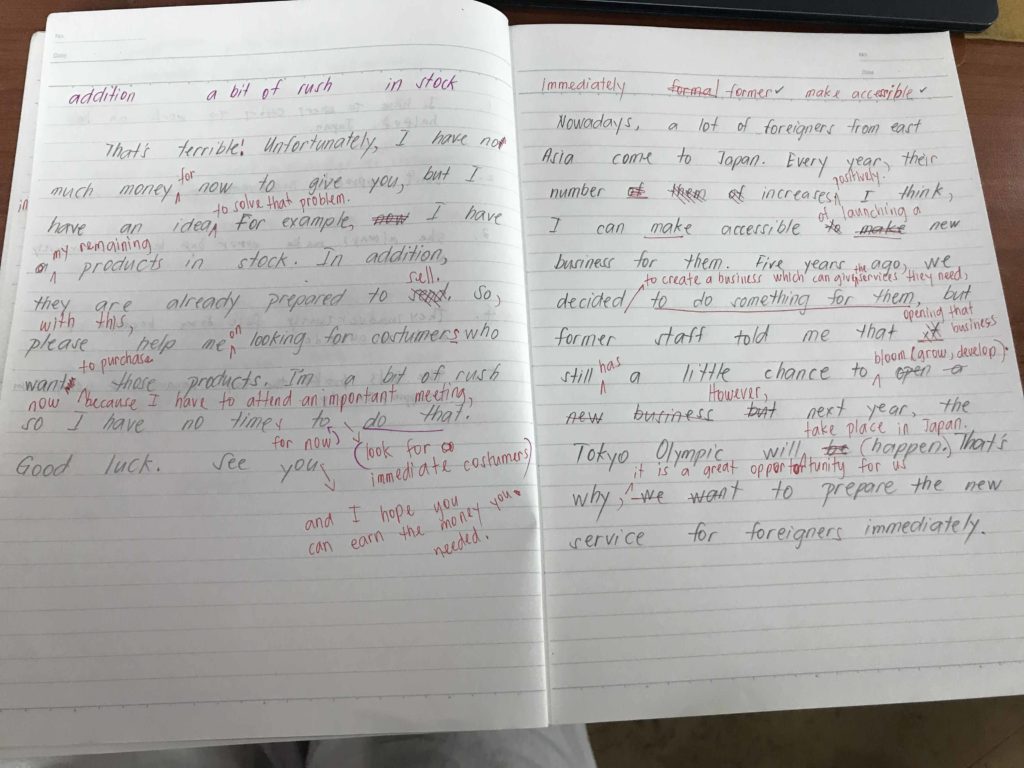 No.
Date
addition a bit of rush in stock
That's terrible! Unfortunately, I have not
for
much money now to give you, but I
in
to solve that problem.
have an idea For example, now I have
my remaining
products in stock. In addition,
sell.
they are already prepared to send. so,
with this, on
please help me looking for costumers who
to purchase
want those products. I'm a bit of rush
now because I have to attend an important meeting,
so I have no time, to do that.
for now (look for
Good luck. See you immediate costumers)
and I hope you
can earn the money you
needed.
No.
Date
Immediately formal former✓ make accessible✓
Nowadays, a lot of foreigners from east
Asia come to Japan. Every year, their
positively.
number of them of increases, I think,
of launching a
I can make accessible to make new
business for them. Five years ago, we
the
to create a business which can give services they need,
decided to do something for them, but
opening that
former staff told me that business
has bloom (grow, develop).
still a little chance to open a
However,
new business but next year, the
take place in Japan.
Tokyo Olympic will be (happen.) That's
it is a great opportunity for us
why, we want to prepare the new
service for foreigners immediately.